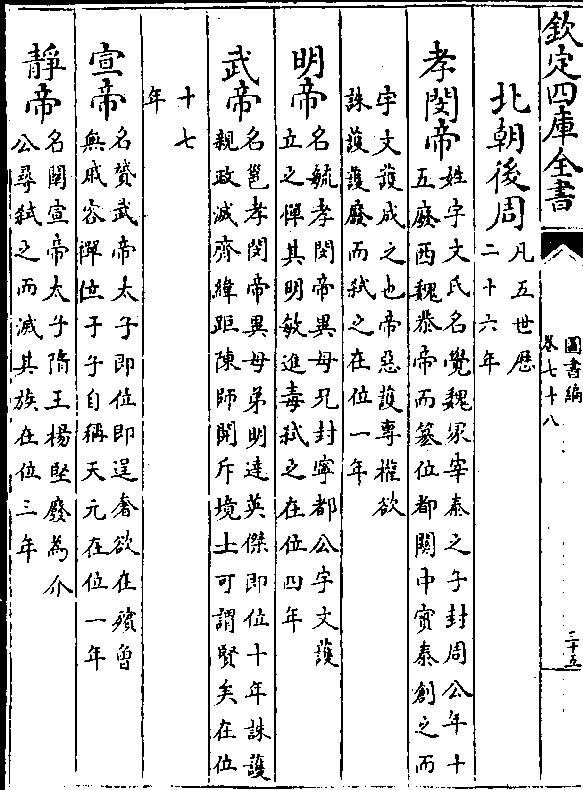 欽定四庫全書
圖書編
卷七十八
三十五
北朝後周
凡五世歷
二十六年
孝閔帝
姓宇文氏名覺魏冢宰泰之子封周公年十
五廢西魏恭帝而簒位都關中實泰創之而
宇文護成之也帝惡護專權欲
誅護護廢而弑之在位一年
明帝
名毓孝閔帝異母兄封寧都公宇文護
立之憚其明敏進毒弑之在位四年
武帝
名邕孝閔帝異母弟明達英傑即位十年誅護
親政滅齊緯距陳師開斥境土可謂賢矣在位
十七
年
宣帝
名贇武帝太子即位即逞奢欲在殯曾
無戚容禪位于子自稱天元在位一年
靜帝
名闡宣帝太子隋王楊堅廢為介
公尋弑之而滅其族在位三年